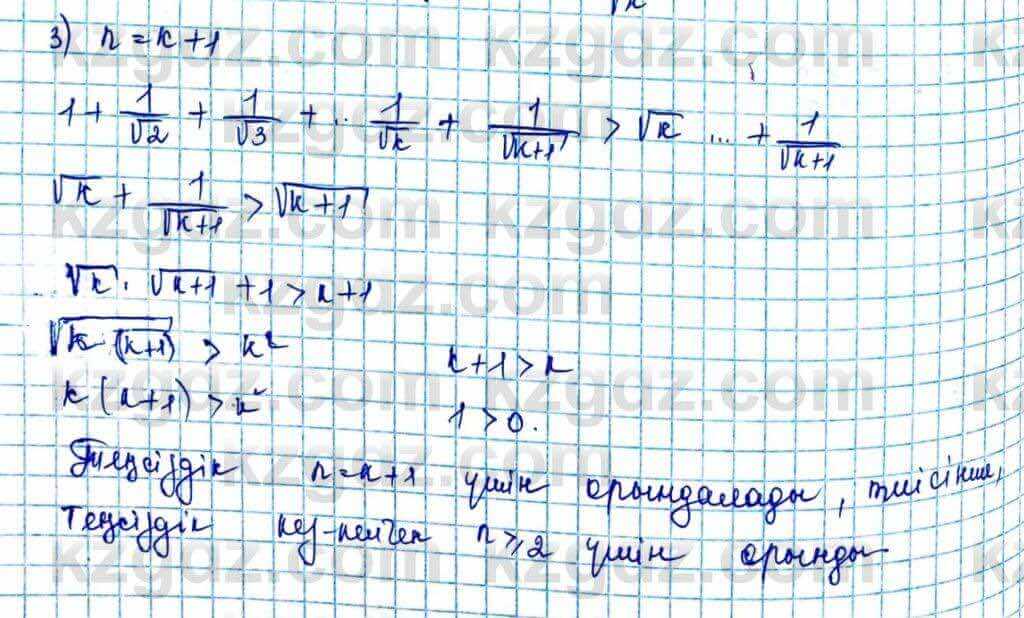 3) n = k + 1
1 + 1/√2 + 1/√3 + .. 1/√k + 1/√k+1 > √k ... + 1/√k+1
√k + 1/√k+1 > √k+1
√k · √k+1 + 1 > k+1
√k (k+1) > k²
k+1 > k
k (k+1) > k²
1 > 0.
Теңсіздік n = k+1 үшін орындалады, тиісінше,
теңсіздік кез-келген n ≥ 2 үшін орынды
kzgdz.com